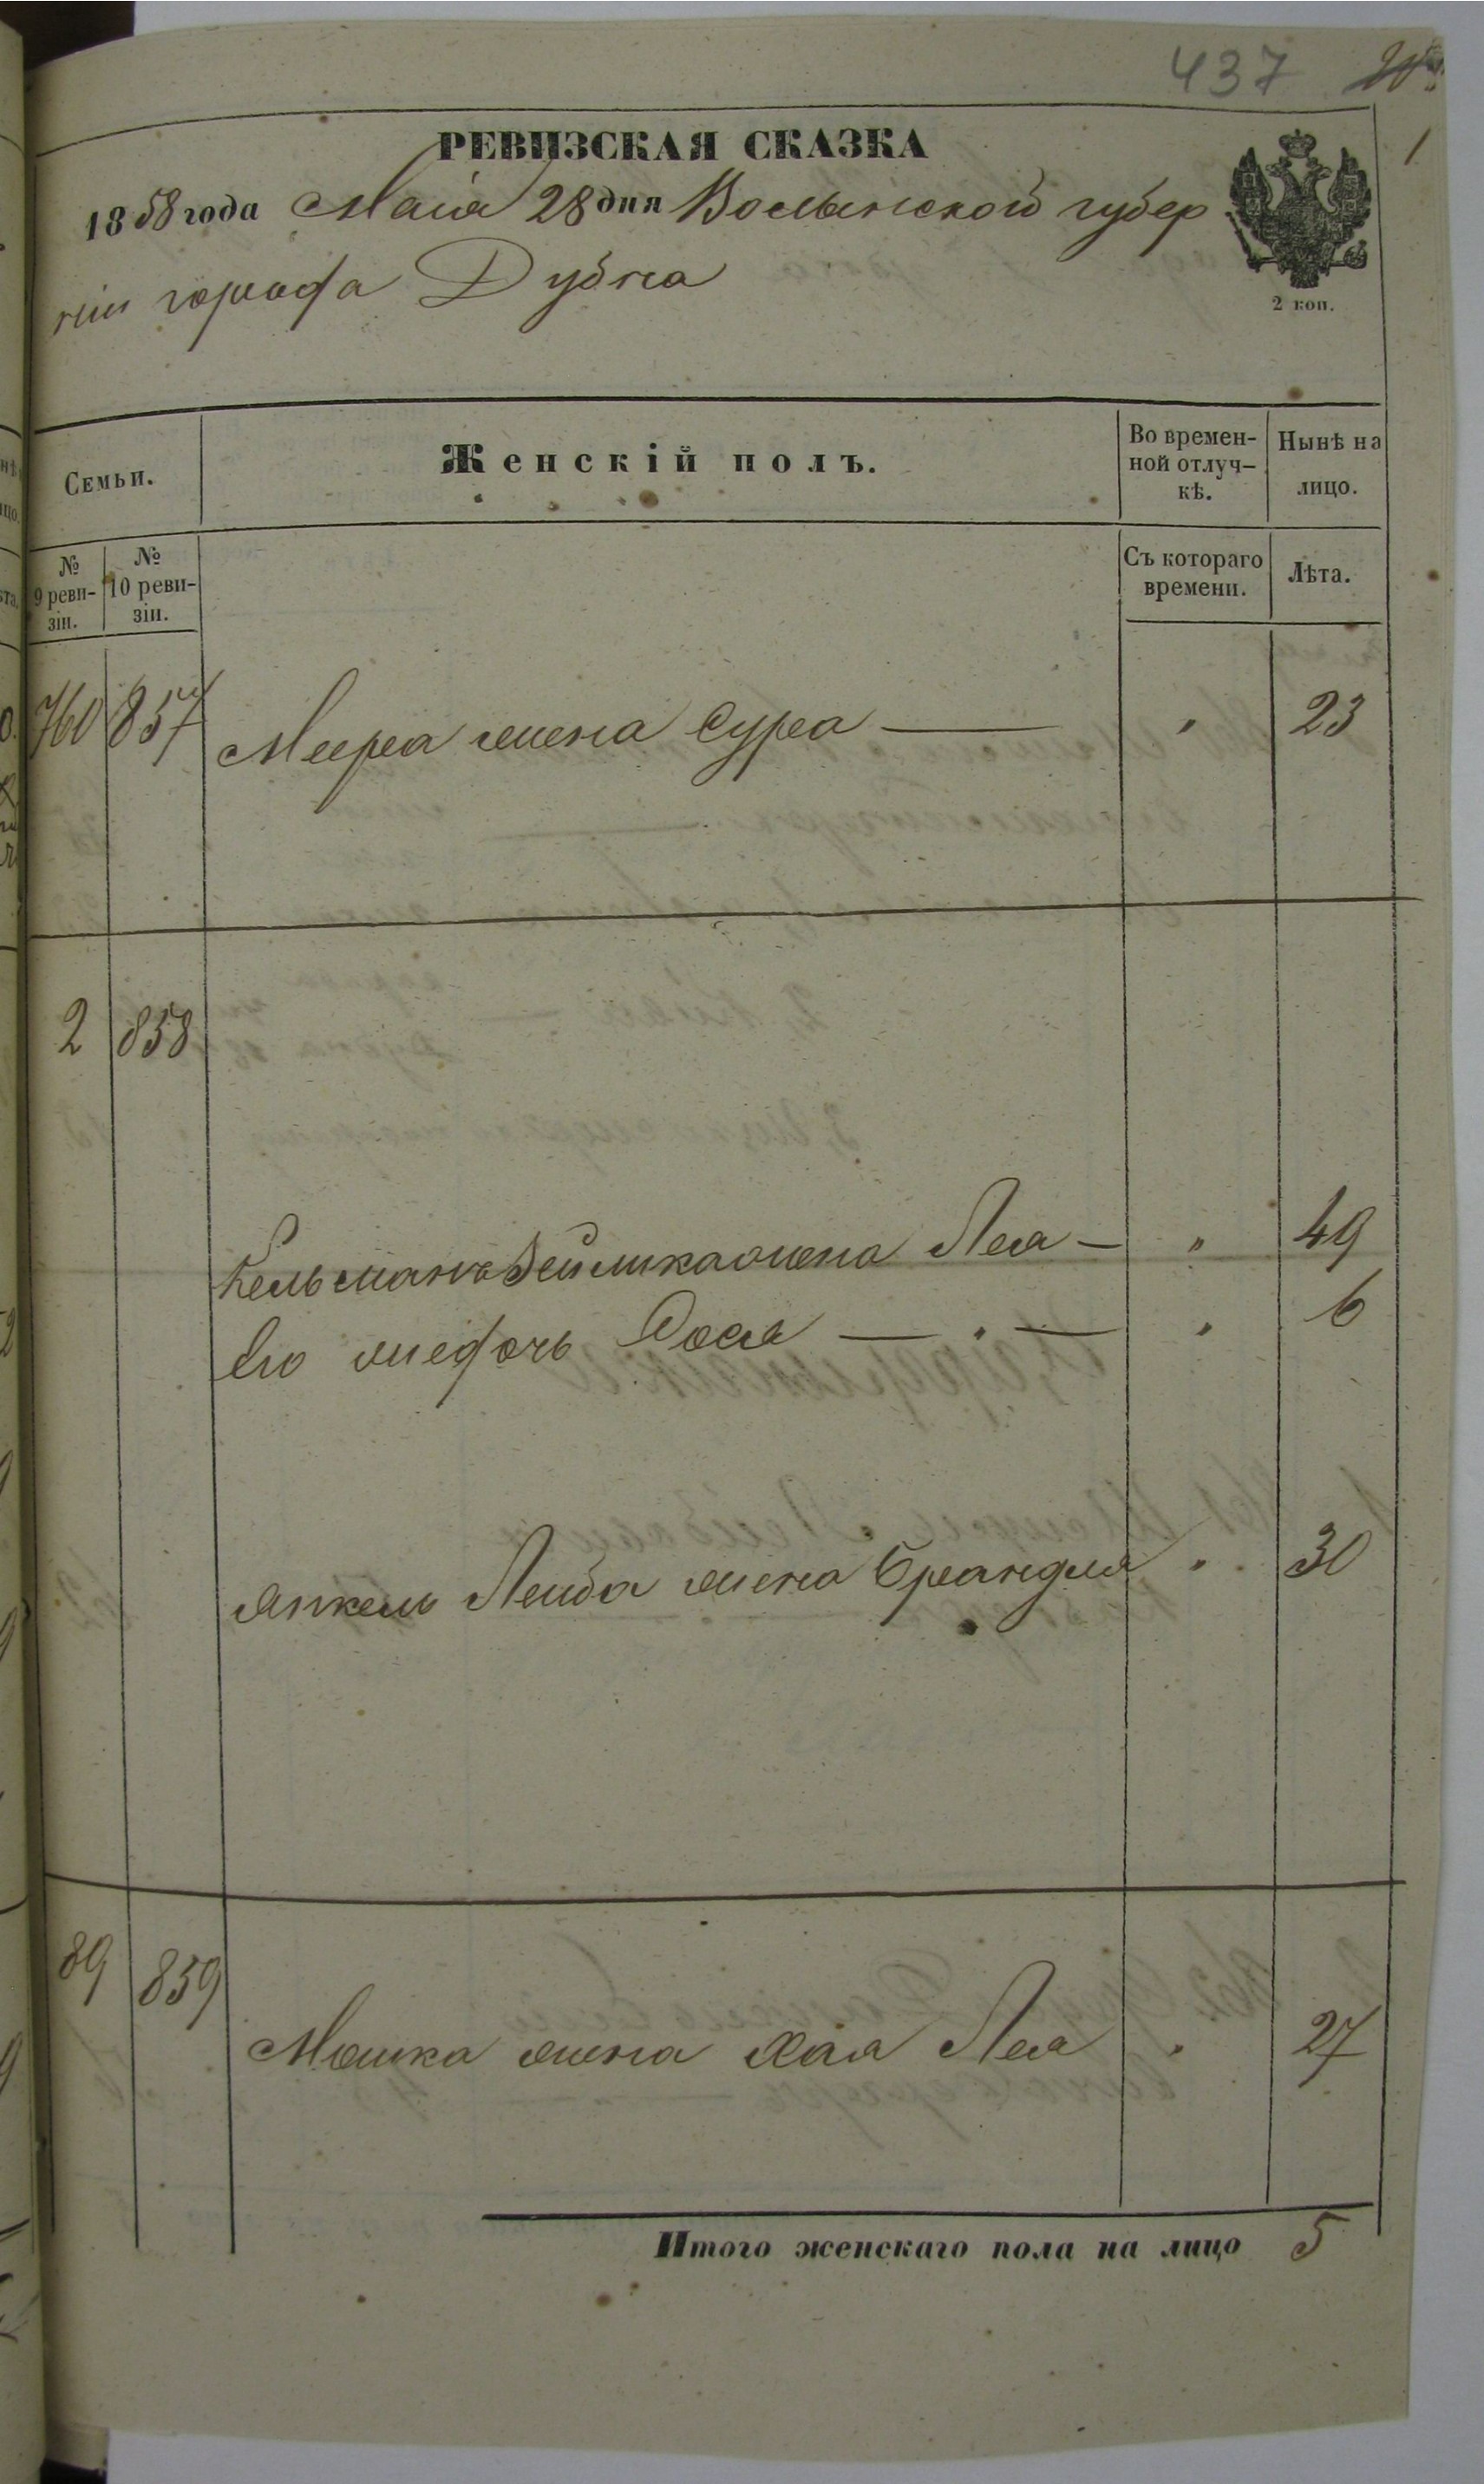 437
РЕВИЗСКАЯ СКАЗКА
1858 года Маія 28 дня Волынской губер
ніи города Дубна
2 коп.
Семьи.
Женскій полъ.
Во времен-
ной отлуч-
кѣ.
Нынѣ на
лицо.
№
9 реви-
зіи.
№
10 реви-
зіи.
Съ котораго
времени.
Лѣта.
760 857 Меера жена Сура — „ 23
2 858
Кельмана Зейлика жена Лея — „ 49
Его жедочь Рося — „ 6
Янкель Лейба жена Брандля „ 30
89 859
Мошка жена Хая Лея „ 27
Итого женскаго пола на лицо 5